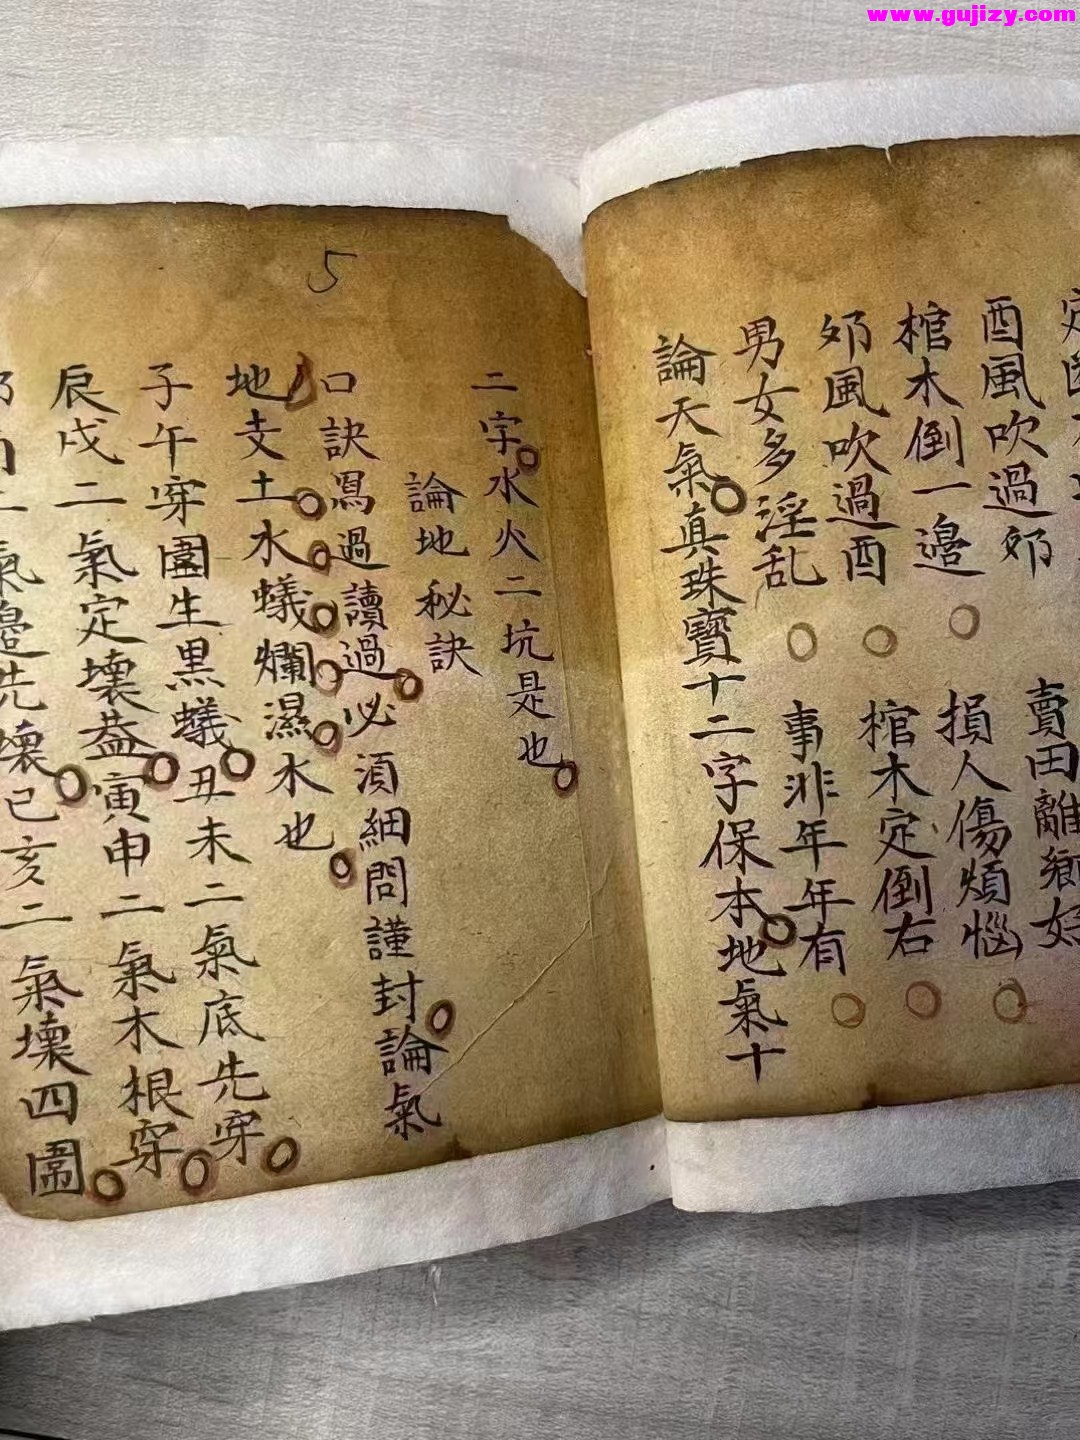 www.gujizy.com
酉風吹過邜 賣田離鄉
棺木倒一邉 損人傷煩惱
邜風吹過酉 棺木定倒右
男女多淫乱 事非年年有
論天氣真珠寳十二字保本地氣十
5
二字水火二坑是也
論地秘訣
口訣寫過讀過必湏細問謹封論氣
地支土水蟻爛濕水也
子午穿圍生黒蟻丑未二氣底先穿
辰戌二氣定壊葢寅申二氣木根穿
二氣邉先壊己亥二氣壊四圍